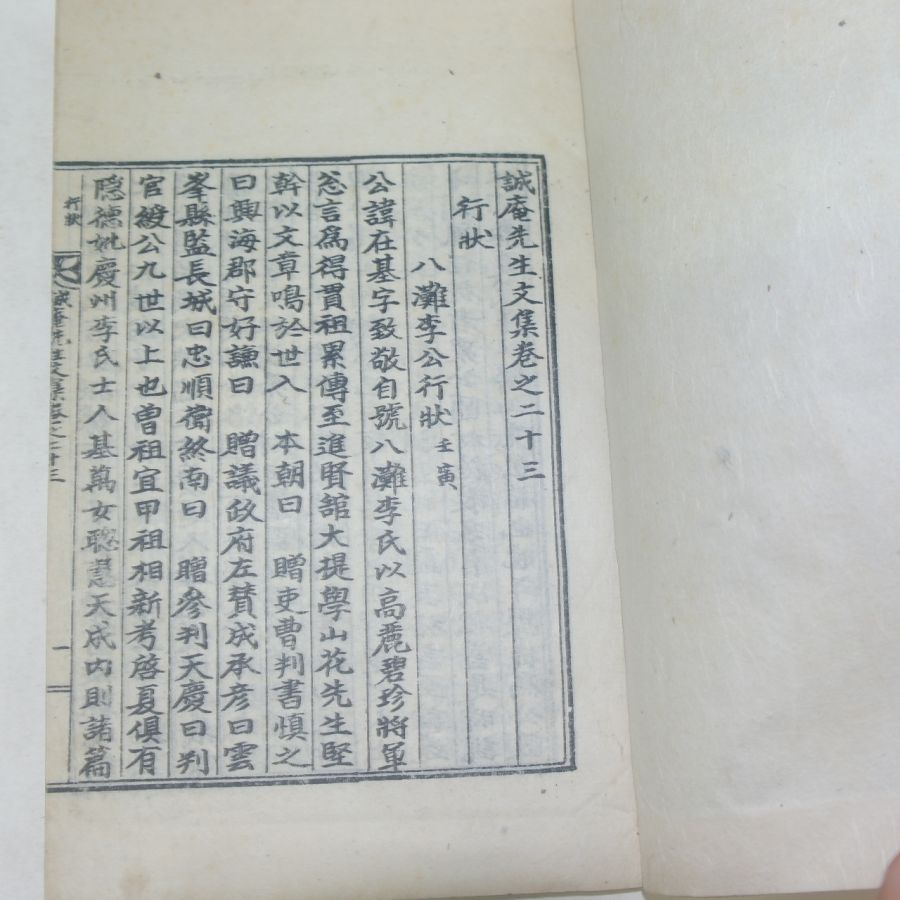 誠庵先生文集卷之二十三
行狀
八灘李公行狀 壬寅
公諱在基字致敬自號八灘李氏以高麗碧珍將軍
忩言爲得貫祖累傳至進賢舘大提學山花先生堅
幹以文章鳴於世入 本朝曰 贈吏曹判書愼之
曰興海郡守好謙曰 贈議政府左贊成承彦曰雲
峯縣監長城曰忠順衛終南曰 贈參判天慶曰判
官緩公九世以上也曾祖宜甲祖相新考啓夏俱有
隱德妣慶州李氏士人基萬女聰慧天成內則諸篇
行狀
誠庵先生文集卷之二十三
一